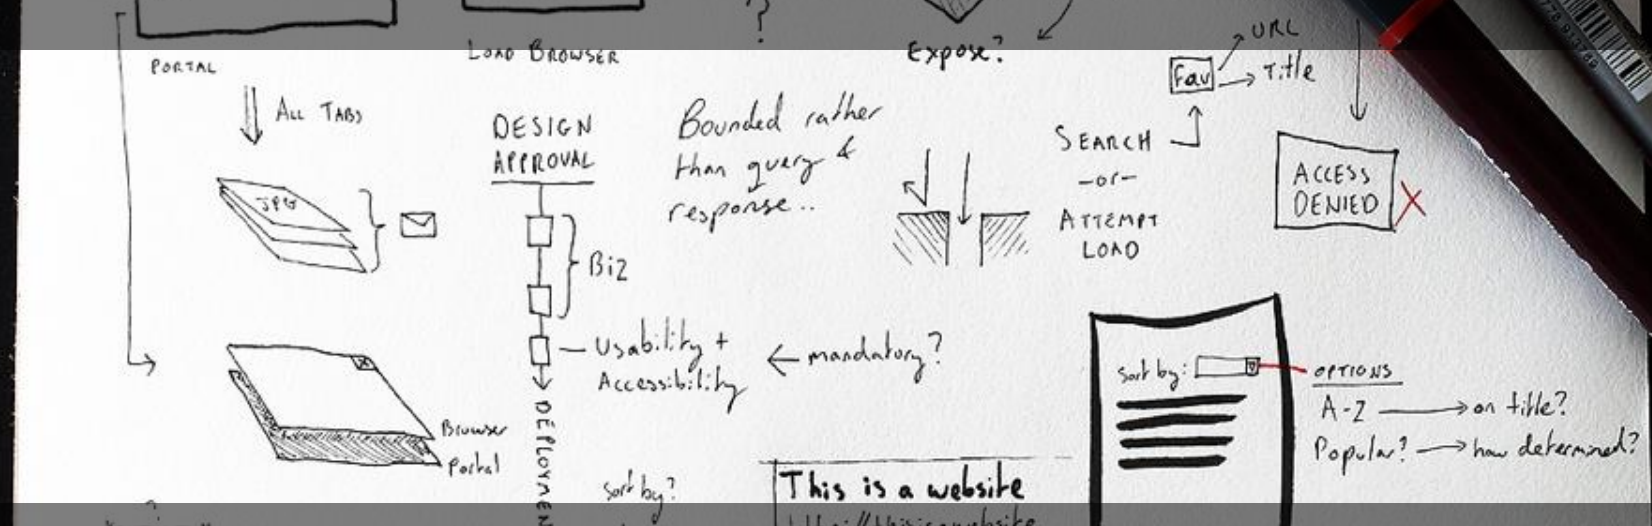 PORTAL
LOAD BROWSER
?
Expose?
URL
Fav
Title
ALL TABS
JPG
DESIGN
APPROVAL
Biz
Usability +
Accessibility
← mandatory?
DEPLOYMEN
Bounded rather
than query &
response..
SEARCH
-or-
ATTEMPT
LOAD
ACCESS
DENIED
X
Browser
Portal
sort by?
This is a website
Sort by:
OPTIONS
A-Z → on title?
Popular? → how determined?
?